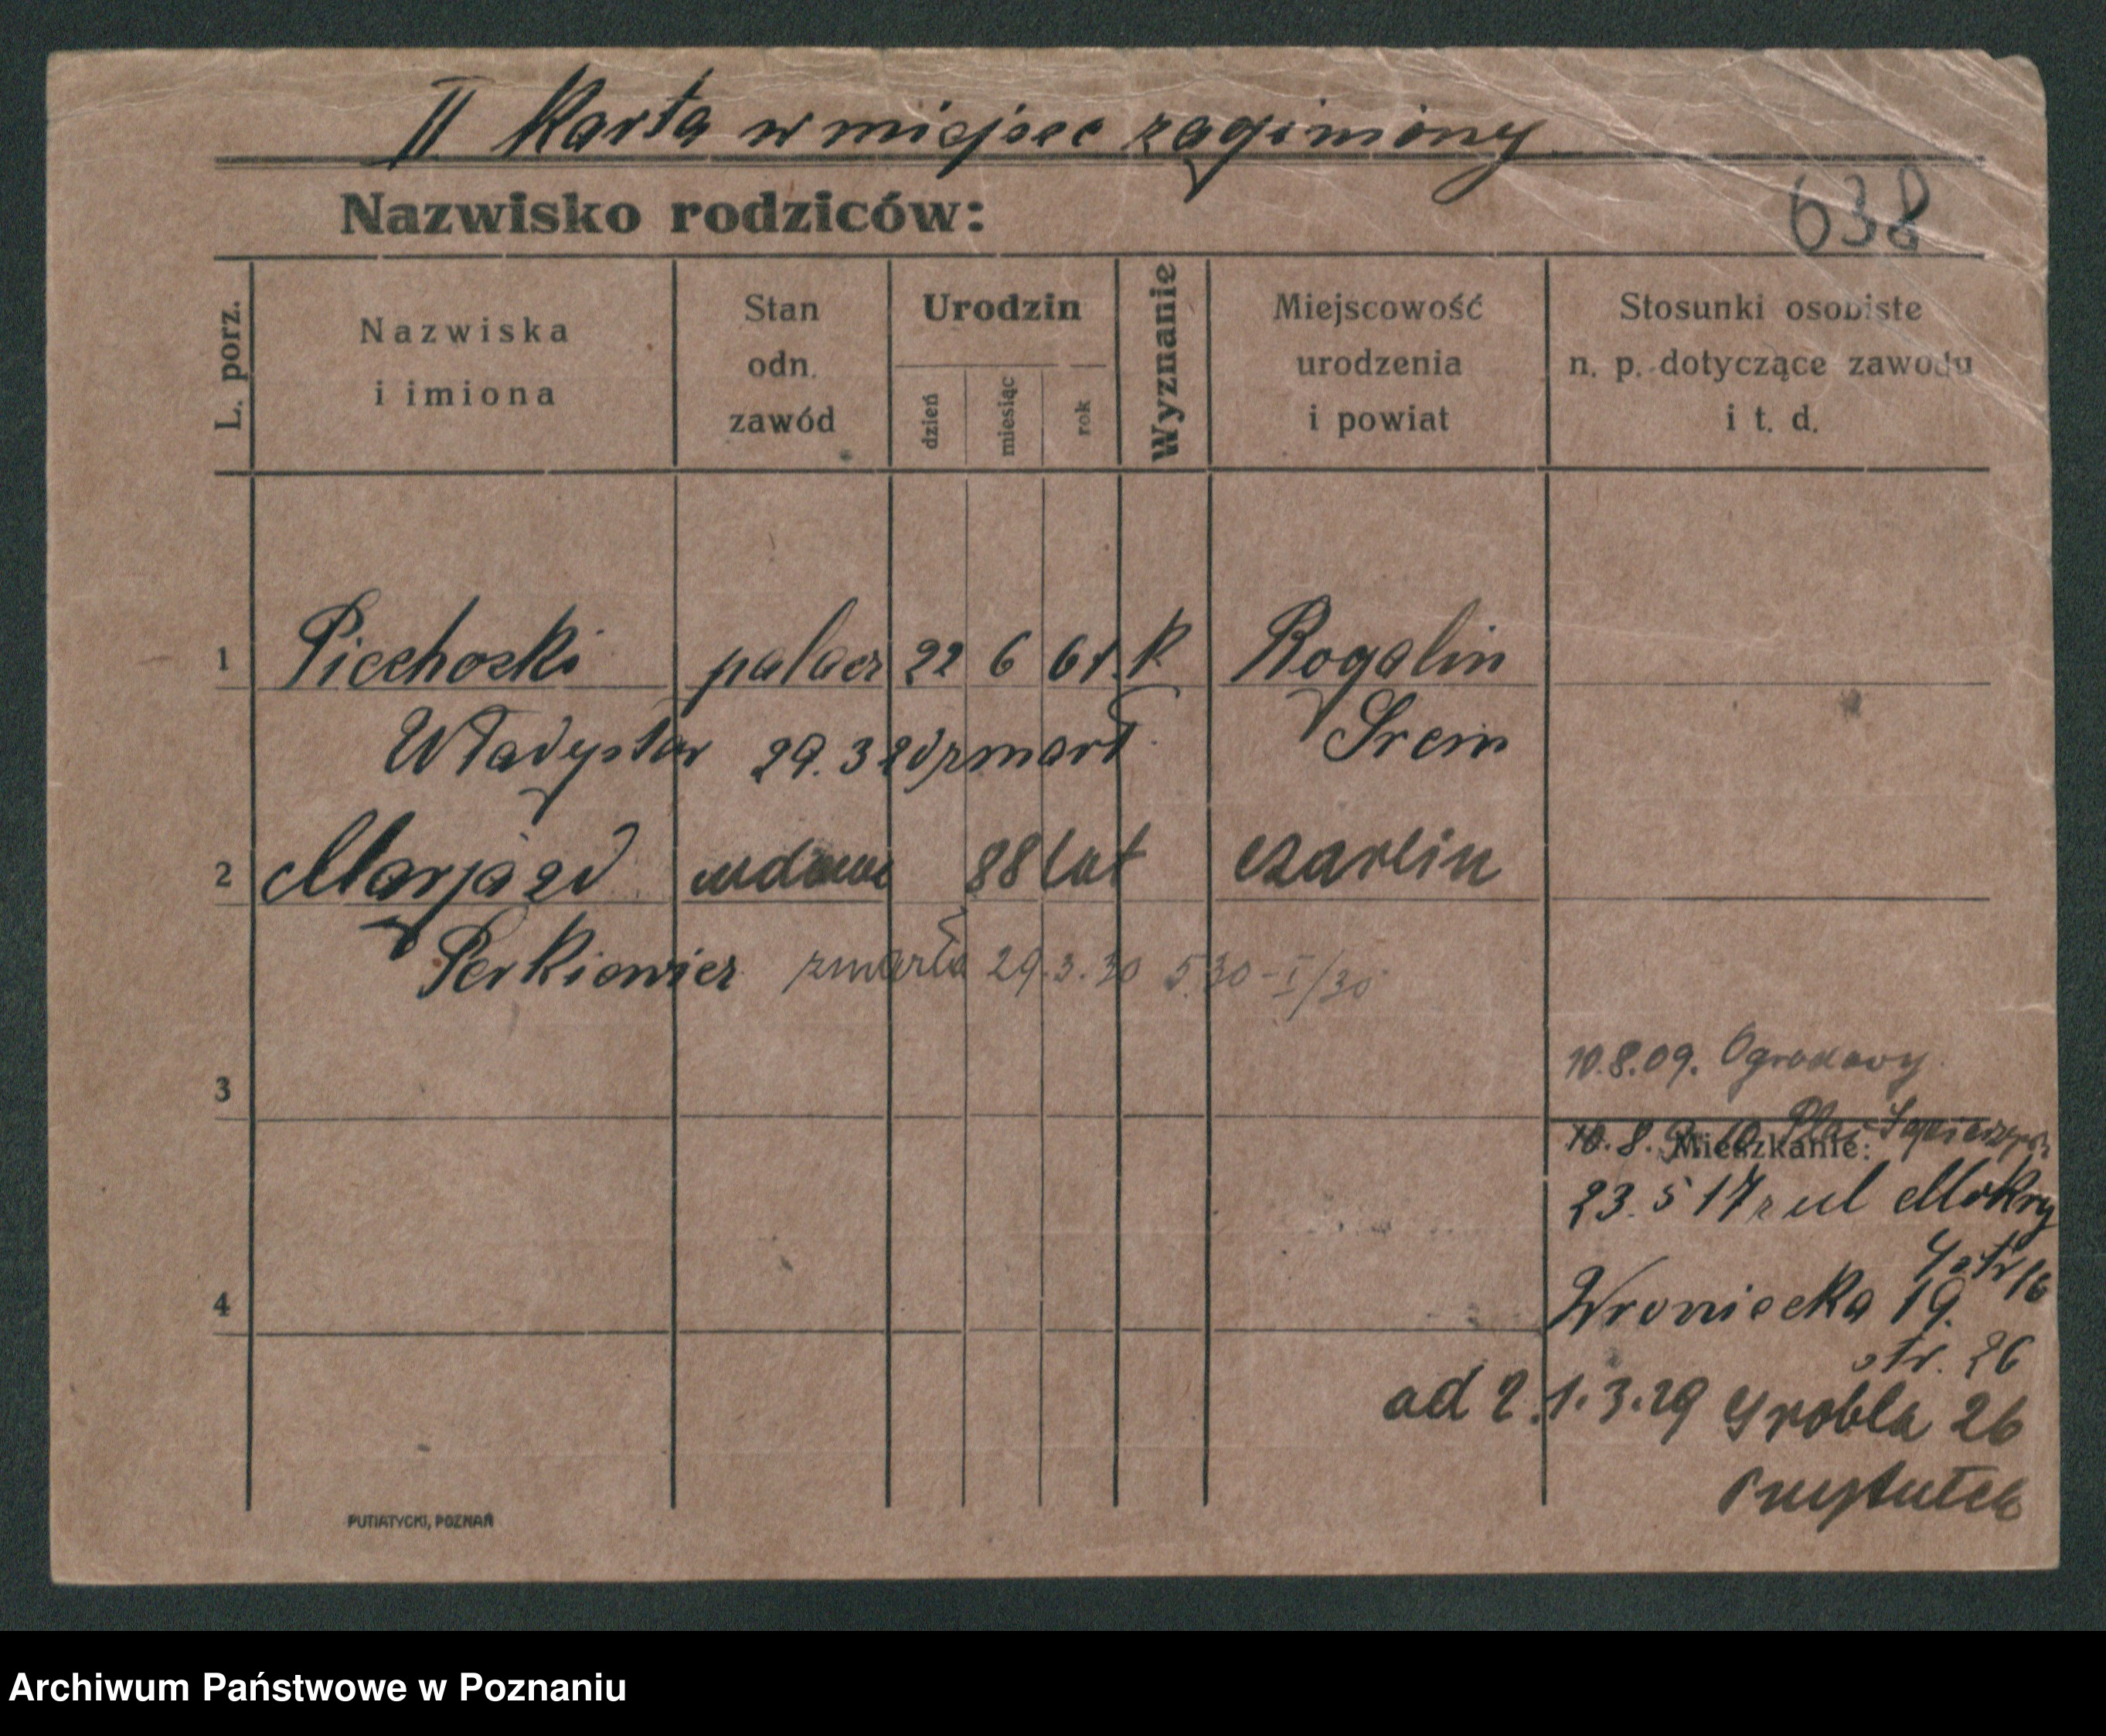 II Karta w miejsce zaginiony
638
Nazwisko rodziców:
L. porz.
Nazwiska
i imiona
Stan
odn.
zawód
Urodzin
dzień
miesiąc
rok
Wyznanie
Miejscowość
urodzenia
i powiat
Stosunki osobiste
n. p. dotyczące zawodu
i t. d.
1 Piechocki palacz 22 6 61. K Rogalin
Władysław 29. 3 20 zmarł Śrem
2 Marja zd wdowa 88 lat Czarlin
Perkiewicz zmarła 29.3.30 5.30-I/30
10.8.09. Ogrodowy
3
10.8.
Mieszkanie:
23.5 17 z ul Mokry
4 str 16
4 Wroniecka 19.
str. 26
od 2.1.3.29 Grobla 26
Przytułek
PUTIATYCKI, POZNAŃ
Archiwum Państwowe w Poznaniu